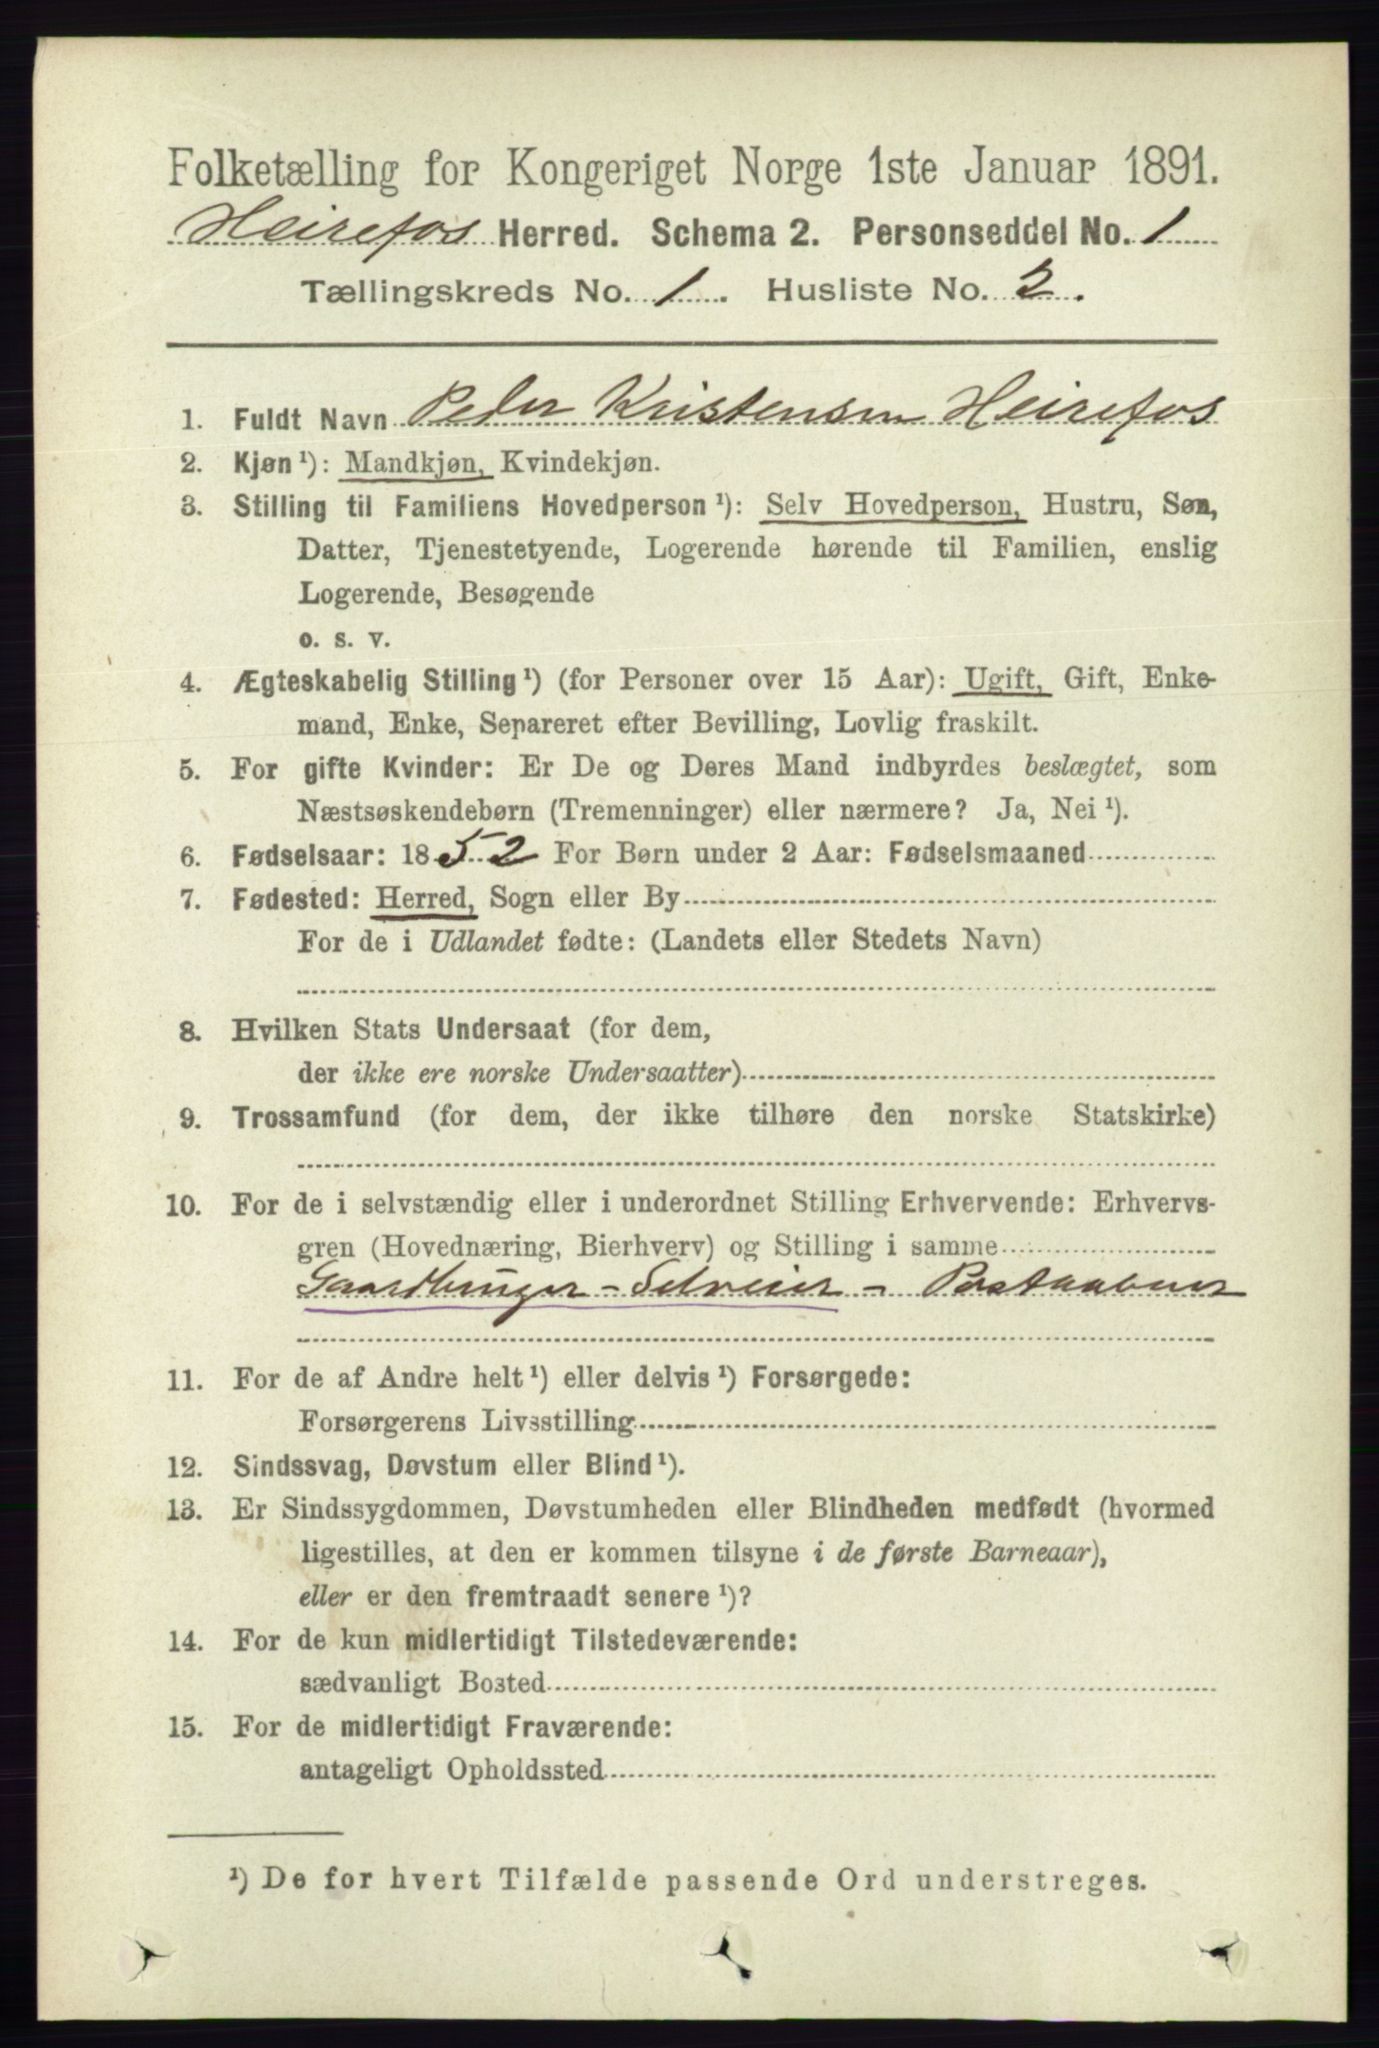 Folketælling for Kongeriget Norge 1ste Januar 1891.
Heirefos Herred. Schema 2. Personseddel No. 1
Tællingskreds No. 1. Husliste No. 2.
1. Fuldt Navn Peder Kristensen Heirefos
2. Kjøn ¹): Mandkjøn, Kvindekjøn.
3. Stilling til Familiens Hovedperson ¹): Selv Hovedperson, Hustru, Søn,
Datter, Tjenestetyende, Logerende hørende til Familien, enslig
Logerende, Besøgende
o. s. v.
4. Ægteskabelig Stilling ¹) (for Personer over 15 Aar): Ugift, Gift, Enke-
mand, Enke, Separeret efter Bevilling, Lovlig fraskilt.
5. For gifte Kvinder: Er De og Deres Mand indbyrdes beslægtet, som
Næstsøskendebørn (Tremenninger) eller nærmere? Ja, Nei ¹).
6. Fødselsaar: 1852 For Børn under 2 Aar: Fødselsmaaned
7. Fødested: Herred, Sogn eller By
For de i Udlandet fødte: (Landets eller Stedets Navn)
8. Hvilken Stats Undersaat (for dem,
der ikke ere norske Undersaatter)
9. Trossamfund (for dem, der ikke tilhøre den norske Statskirke)
10. For de i selvstændig eller i underordnet Stilling Erhvervende: Erhvervs-
gren (Hovednæring, Bierhverv) og Stilling i samme
Gaardbruger - Selveier - Postaabner
11. For de af Andre helt ¹) eller delvis ¹) Forsørgede:
Forsørgerens Livsstilling
12. Sindssvag, Døvstum eller Blind ¹).
13. Er Sindssygdommen, Døvstumheden eller Blindheden medfødt (hvormed
ligestilles, at den er kommen tilsyne i de første Barneaar),
eller er den fremtraadt senere ¹)?
14. For de kun midlertidigt Tilstedeværende:
sædvanligt Bosted
15. For de midlertidigt Fraværende:
antageligt Opholdssted
¹) De for hvert Tilfælde passende Ord understreges.